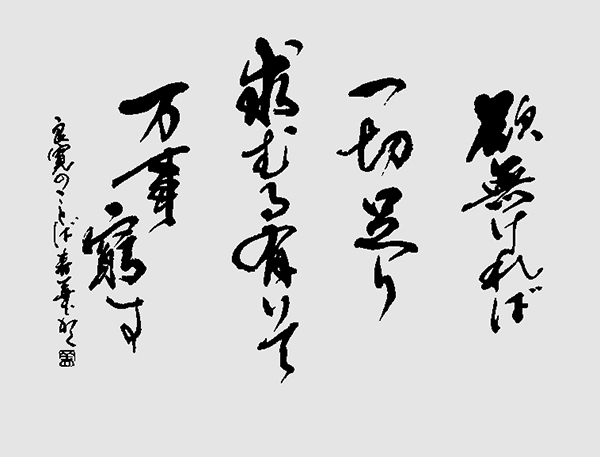 欲無ければ
一切足り
求むる有りて
万事窮す
良寛のことば